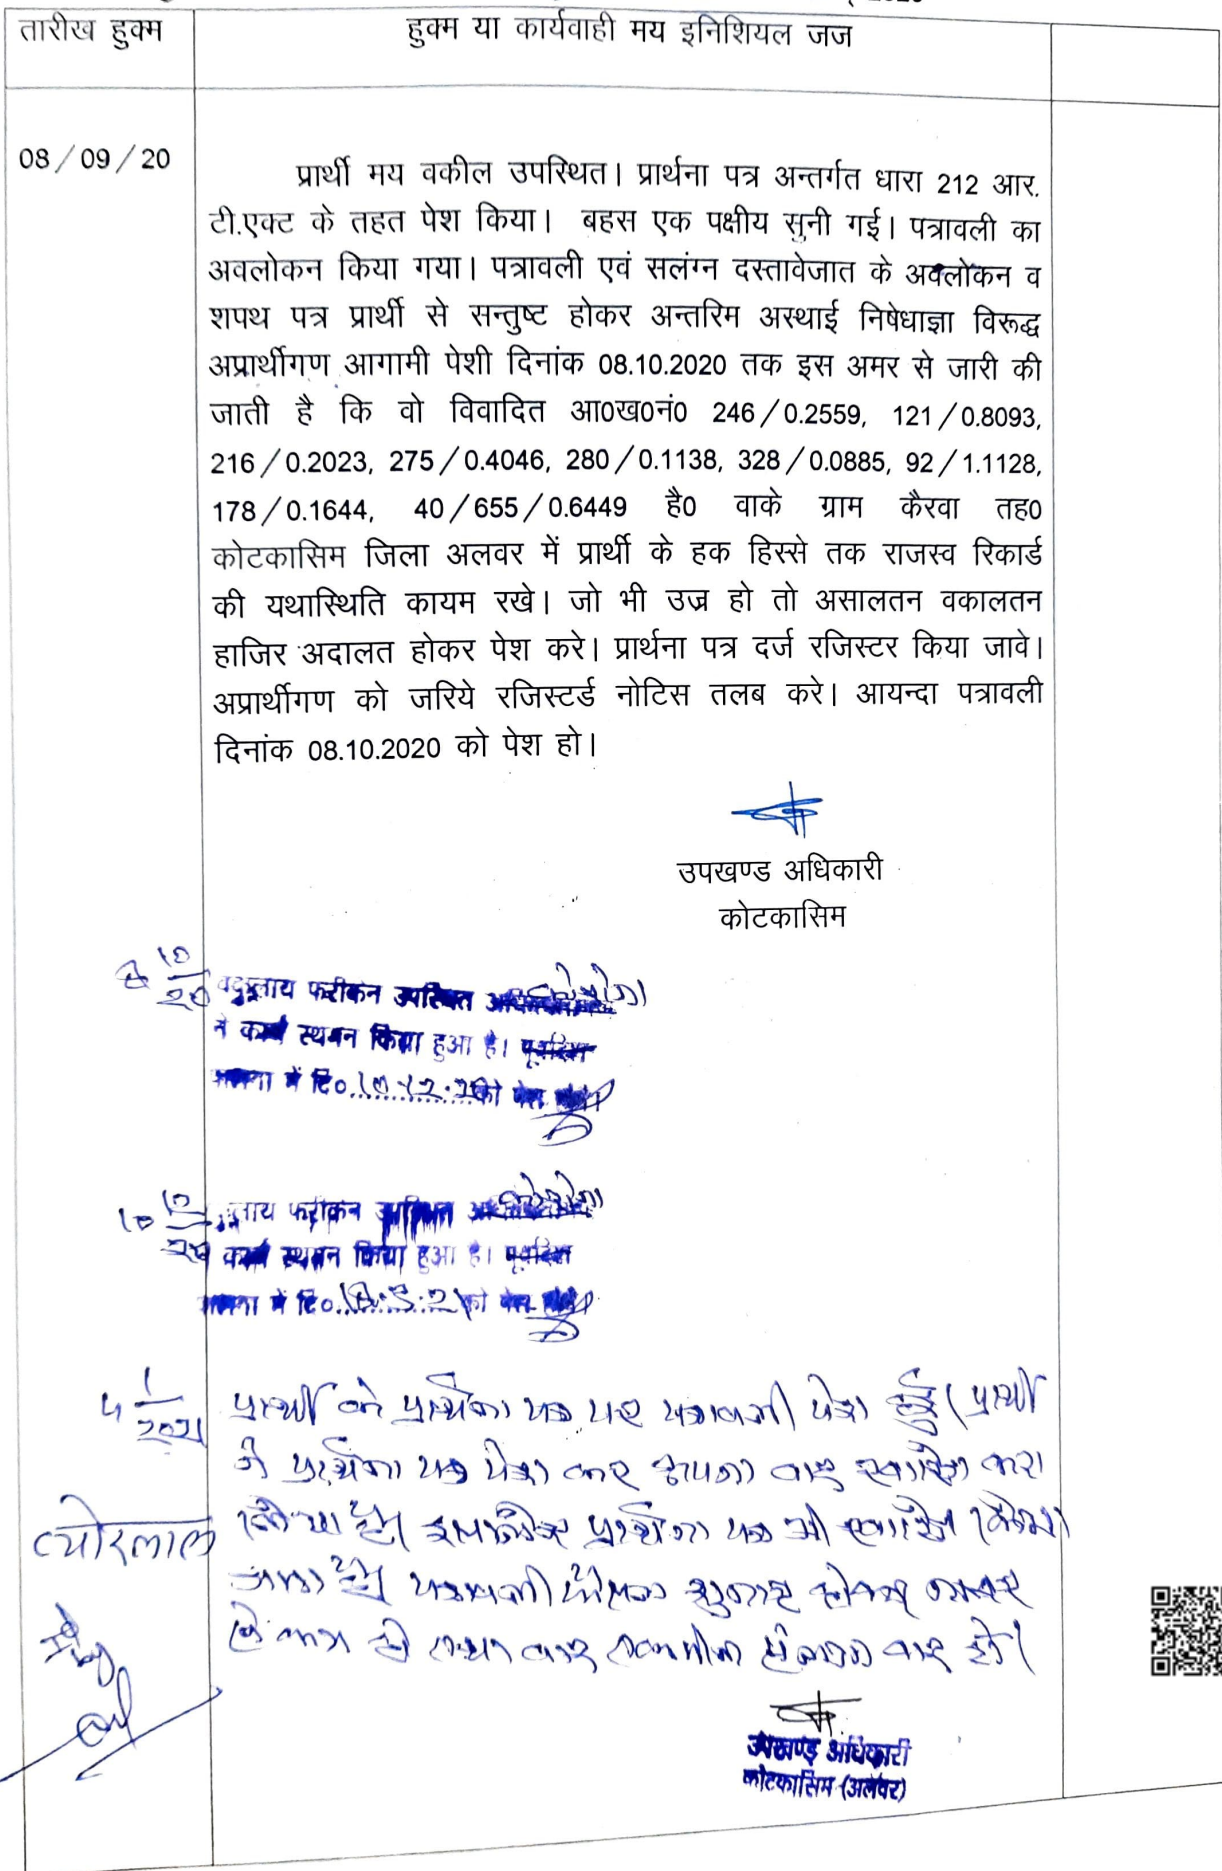 2020
तारीख हुक्म
हुक्म या कार्यवाही मय इनिशियल जज
08/09/20
प्रार्थी मय वकील उपस्थित। प्रार्थना पत्र अन्तर्गत धारा 212 आर.
टी.एक्ट के तहत पेश किया। बहस एक पक्षीय सुनी गई। पत्रावली का
अवलोकन किया गया। पत्रावली एवं सलंग्न दस्तावेजात के अवलोकन व
शपथ पत्र प्रार्थी से सन्तुष्ट होकर अन्तरिम अस्थाई निषेधाज्ञा विरूद्ध
अप्रार्थीगण आगामी पेशी दिनांक 08.10.2020 तक इस अमर से जारी की
जाती है कि वो विवादित आ0ख0नं0 246/0.2559, 121/0.8093,
216/0.2023, 275/0.4046, 280/0.1138, 328/0.0885, 92/1.1128,
178/0.1644, 40/655/0.6449 है0 वाके ग्राम कैरवा तह0
कोटकासिम जिला अलवर में प्रार्थी के हक हिस्से तक राजस्व रिकार्ड
की यथास्थिति कायम रखे। जो भी उज्र हो तो असालतन वकालतन
हाजिर अदालत होकर पेश करे। प्रार्थना पत्र दर्ज रजिस्टर किया जावे।
अप्रार्थीगण को जरिये रजिस्टर्ड नोटिस तलब करे। आयन्दा पत्रावली
दिनांक 08.10.2020 को पेश हो।
उपखण्ड अधिकारी
कोटकासिम
8 10/20 फरीकन उपस्थित
ने कार्य स्थगन किया हुआ है।
में दि0 को पेश
10 12/20 फरीकन उपस्थित
कार्य स्थगन किया हुआ है।
में दि0 को पेश
5 1/2021 प्रार्थी के प्रार्थना पत्र पर पत्रावली पेश हुई। प्रार्थी
ने प्रार्थना पत्र पेश कर अपना वाद खारिज करा
लिया है। इसलिए प्रार्थना पत्र भी खारिज किया
जाता है। पत्रावली फैसल शुमार होकर नम्बर
से कम हो तथा बाद तकमील दाखिल दफ्तर हो।
उपखण्ड अधिकारी
कोटकासिम (अलवर)